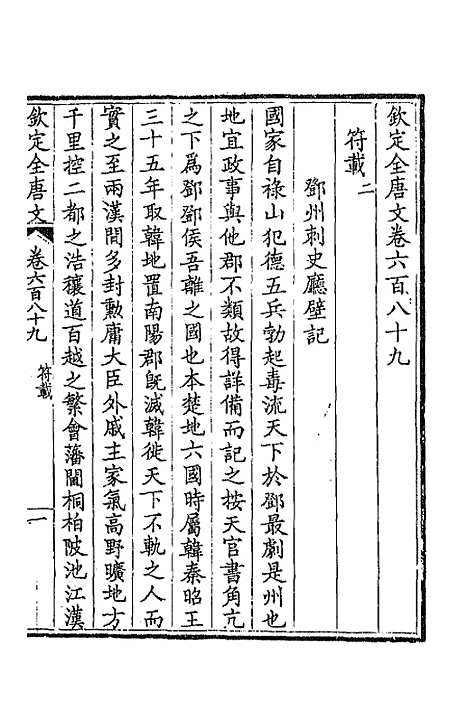 欽定全唐文卷六百八十九
符載二
鄧州刺史廳壁記
國家自祿山犯德五兵勃起毒流天下於鄧最劇是州也
地宜政事與他郡不類故得詳備而記之按天官書角亢
之下爲鄧鄧侯吾離之國也本楚地六國時屬韓秦昭王
三十五年取韓地置南陽郡旣滅韓徙天下不軌之人而
實之至兩漢間多封勲庸大臣外戚主家氣高野曠地方
千里控二都之浩穰道百越之繁會藩閫桐柏陂池江漢
欽定全唐文
卷六百八十九
符載
一